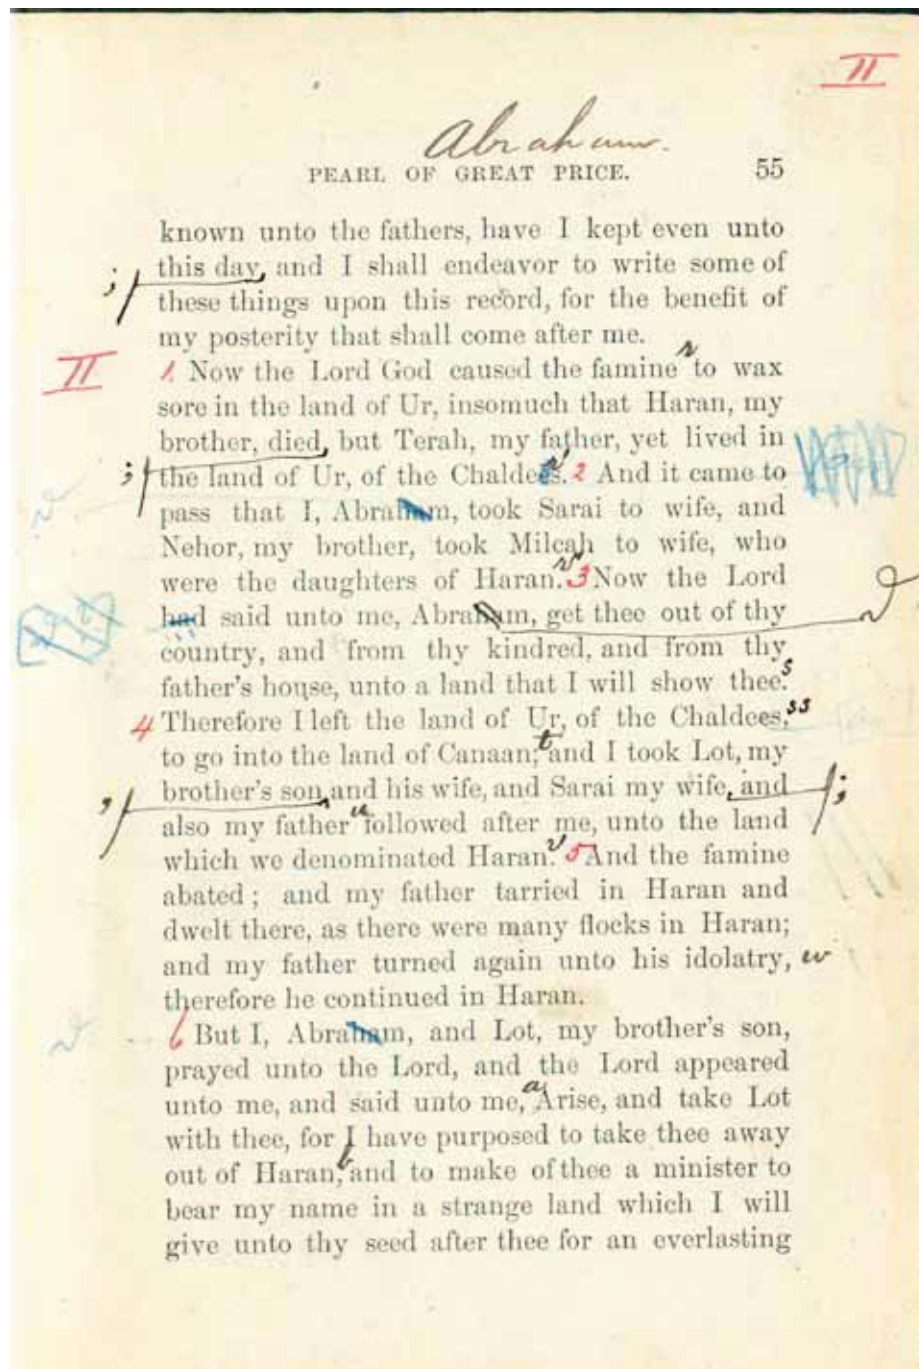 II
Abraham.
PEARL OF GREAT PRICE. 55
known unto the fathers, have I kept even unto
; this day, and I shall endeavor to write some of
these things upon this record, for the benefit of
my posterity that shall come after me.
II 1. Now the Lord God caused the famine to wax
sore in the land of Ur, insomuch that Haran, my
brother, died, but Terah, my father, yet lived in
; the land of Ur, of the Chaldees. 2 And it came to
pass that I, Abraham, took Sarai to wife, and
Nehor, my brother, took Milcah to wife, who
were the daughters of Haran. 3 Now the Lord
had said unto me, Abraham, get thee out of thy
country, and from thy kindred, and from thy
father's house, unto a land that I will show thee. s
4 Therefore I left the land of Ur, of the Chaldees, ss
to go into the land of Canaan; t and I took Lot, my
, brother's son, and his wife, and Sarai my wife, and ;
also my father u followed after me, unto the land
which we denominated Haran. v 5 And the famine
abated; and my father tarried in Haran and
dwelt there, as there were many flocks in Haran;
and my father turned again unto his idolatry, w
therefore he continued in Haran.
6 But I, Abraham, and Lot, my brother's son,
prayed unto the Lord, and the Lord appeared
unto me, and said unto me, a Arise, and take Lot
with thee, for I have purposed to take thee away
out of Haran, b and to make of thee a minister to
bear my name in a strange land which I will
give unto thy seed after thee for an everlasting